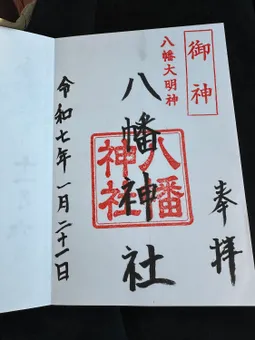 奉拝
御神
八幡大明神
八幡神社
八幡神社
令和七年一月二十一日